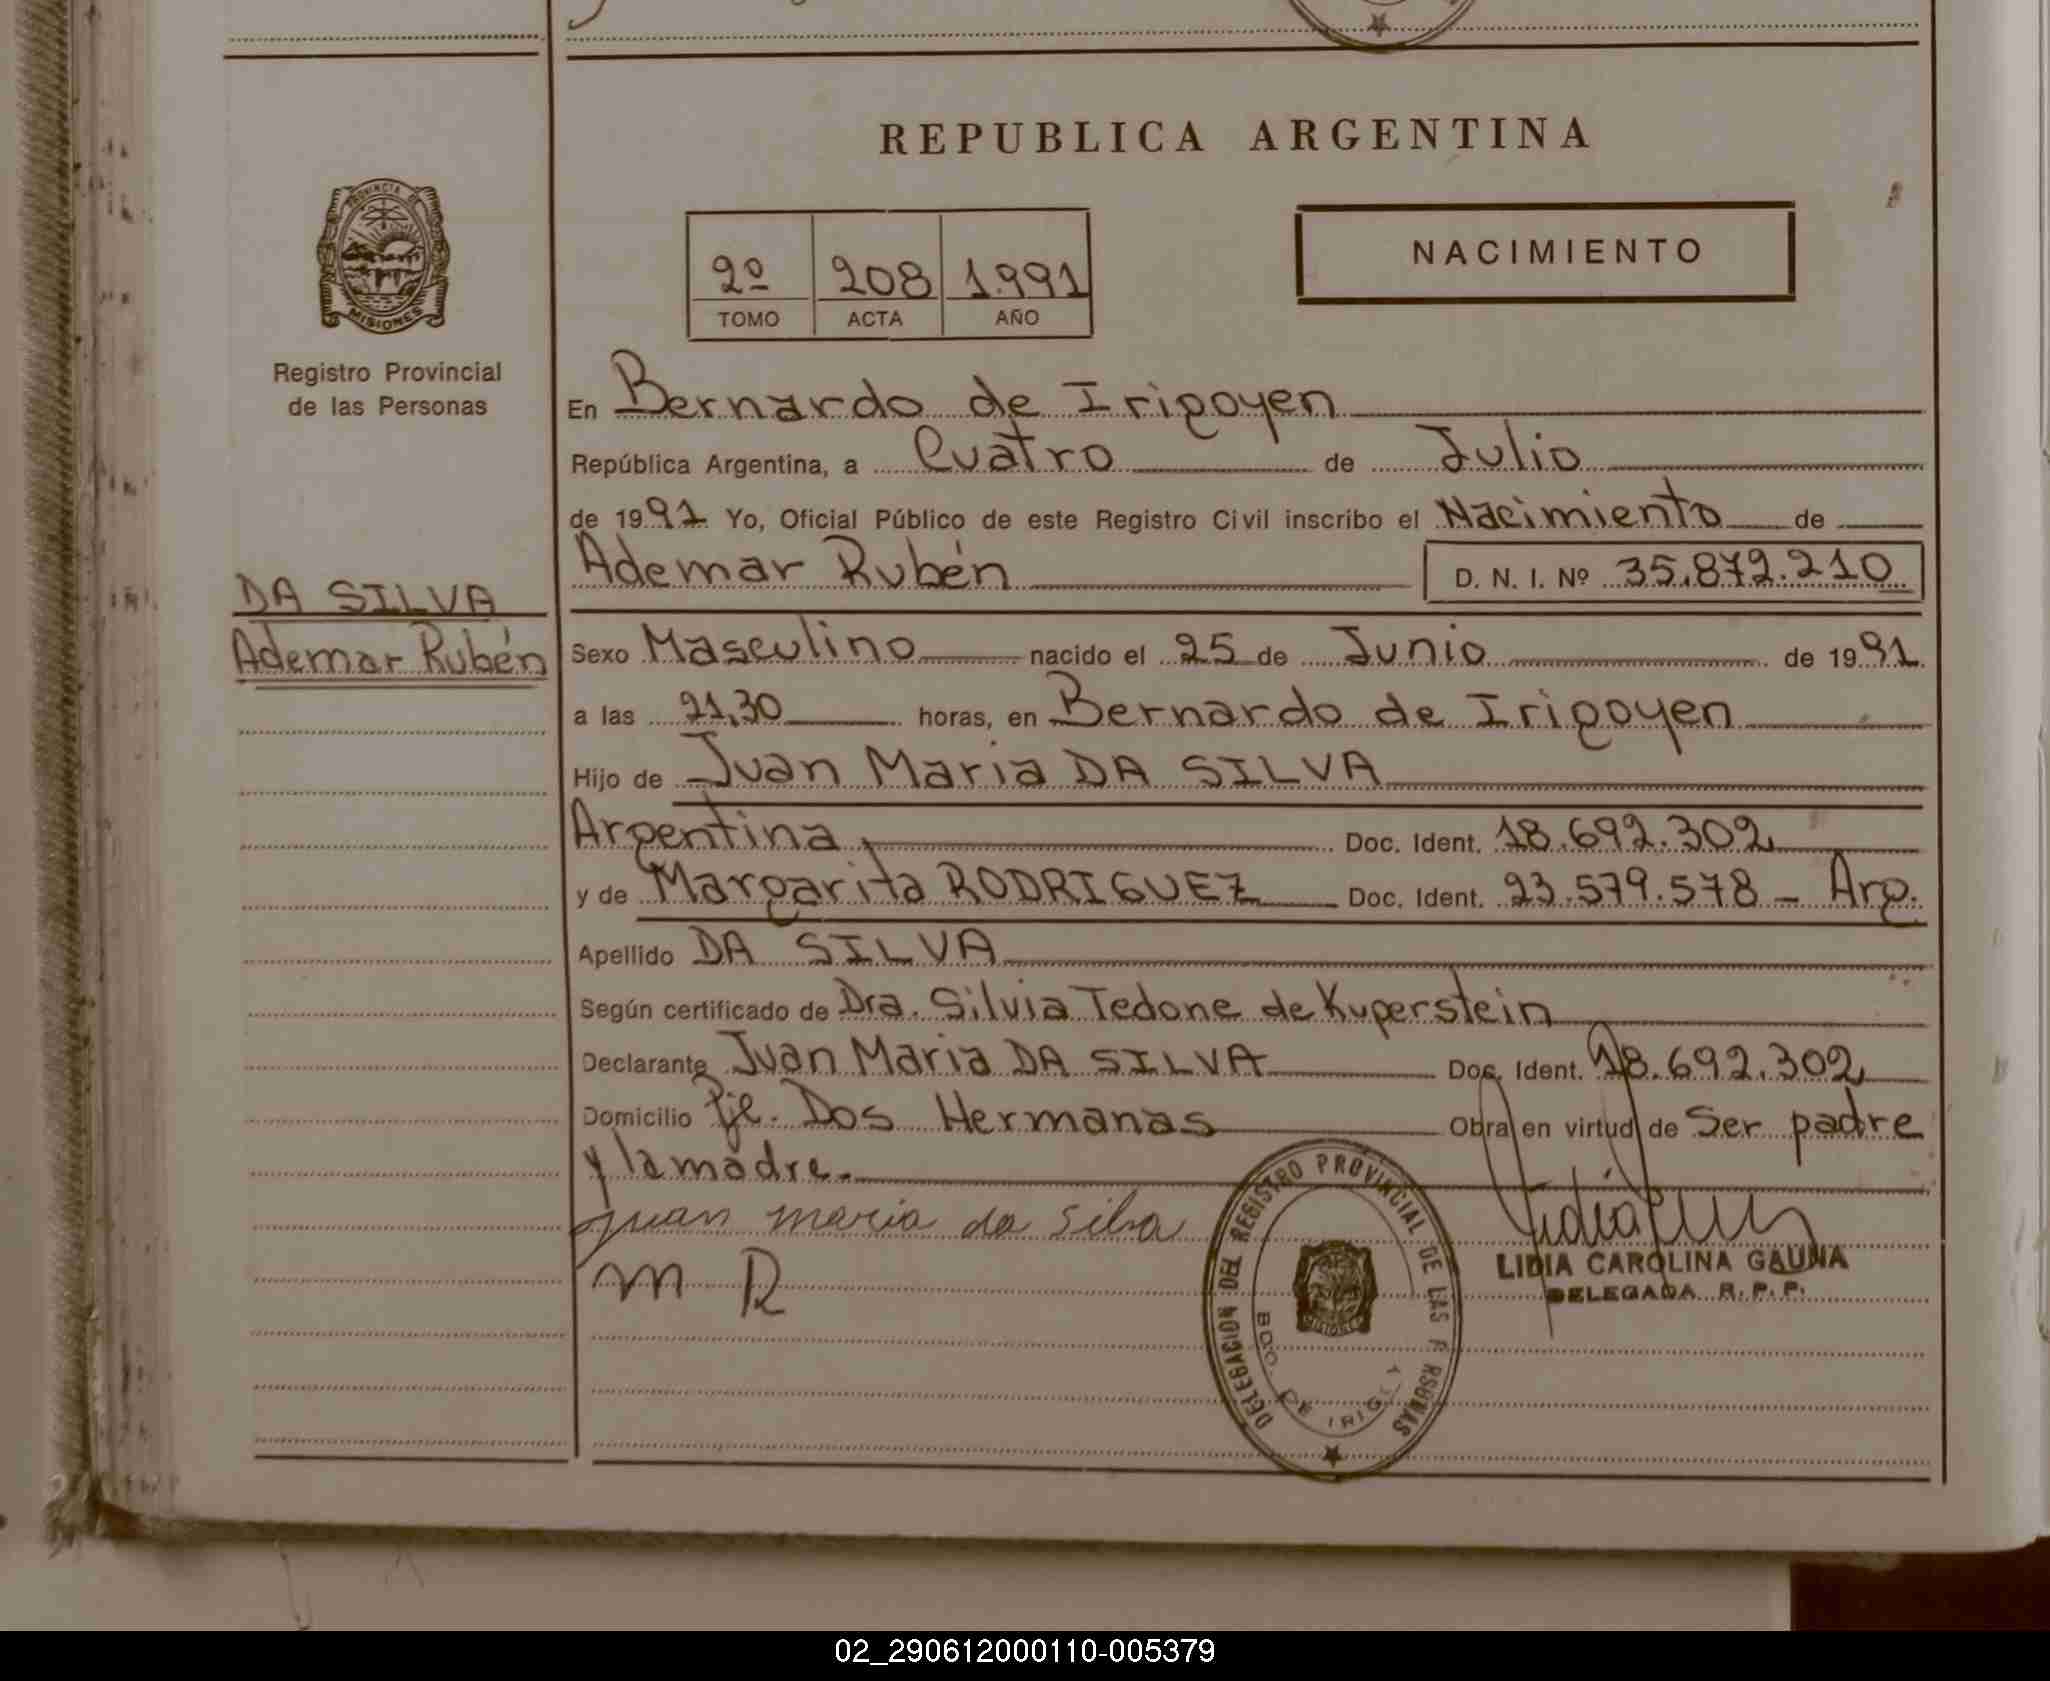 REPUBLICA ARGENTINA
PROVINCIA DE
MISIONES
Registro Provincial
de las Personas
2º 208 1.991
TOMO ACTA AÑO
NACIMIENTO
En Bernardo de Irigoyen
República Argentina, a Cuatro de Julio
de 1991 Yo, Oficial Público de este Registro Civil inscribo el Nacimiento de
Ademar Rubén D. N. I. Nº 35.872.210
DA SILVA
Ademar Rubén
Sexo Masculino nacido el 25 de Junio de 1991
a las 21,30 horas, en Bernardo de Irigoyen
Hijo de Juan Maria DA SILVA
Argentina Doc. Ident. 18.692.302
y de Margarita RODRIGUEZ Doc. Ident. 23.579.578 - Arg.
Apellido DA SILVA
Según certificado de Dra. Silvia Tedone de Kuperstein
Declarante Juan Maria DA SILVA Doc. Ident. 18.692.302
Domicilio Pje. Dos Hermanas Obra en virtud de Ser padre
y la madre.
juan maria da silva
M R
DELEGACION DEL REGISTRO PROVINCIAL DE LAS P RSONAS
BDO. DE IRIG Y
MISIONES
LIDIA CAROLINA GAUNA
DELEGADA R. P. P.
02_290612000110-005379